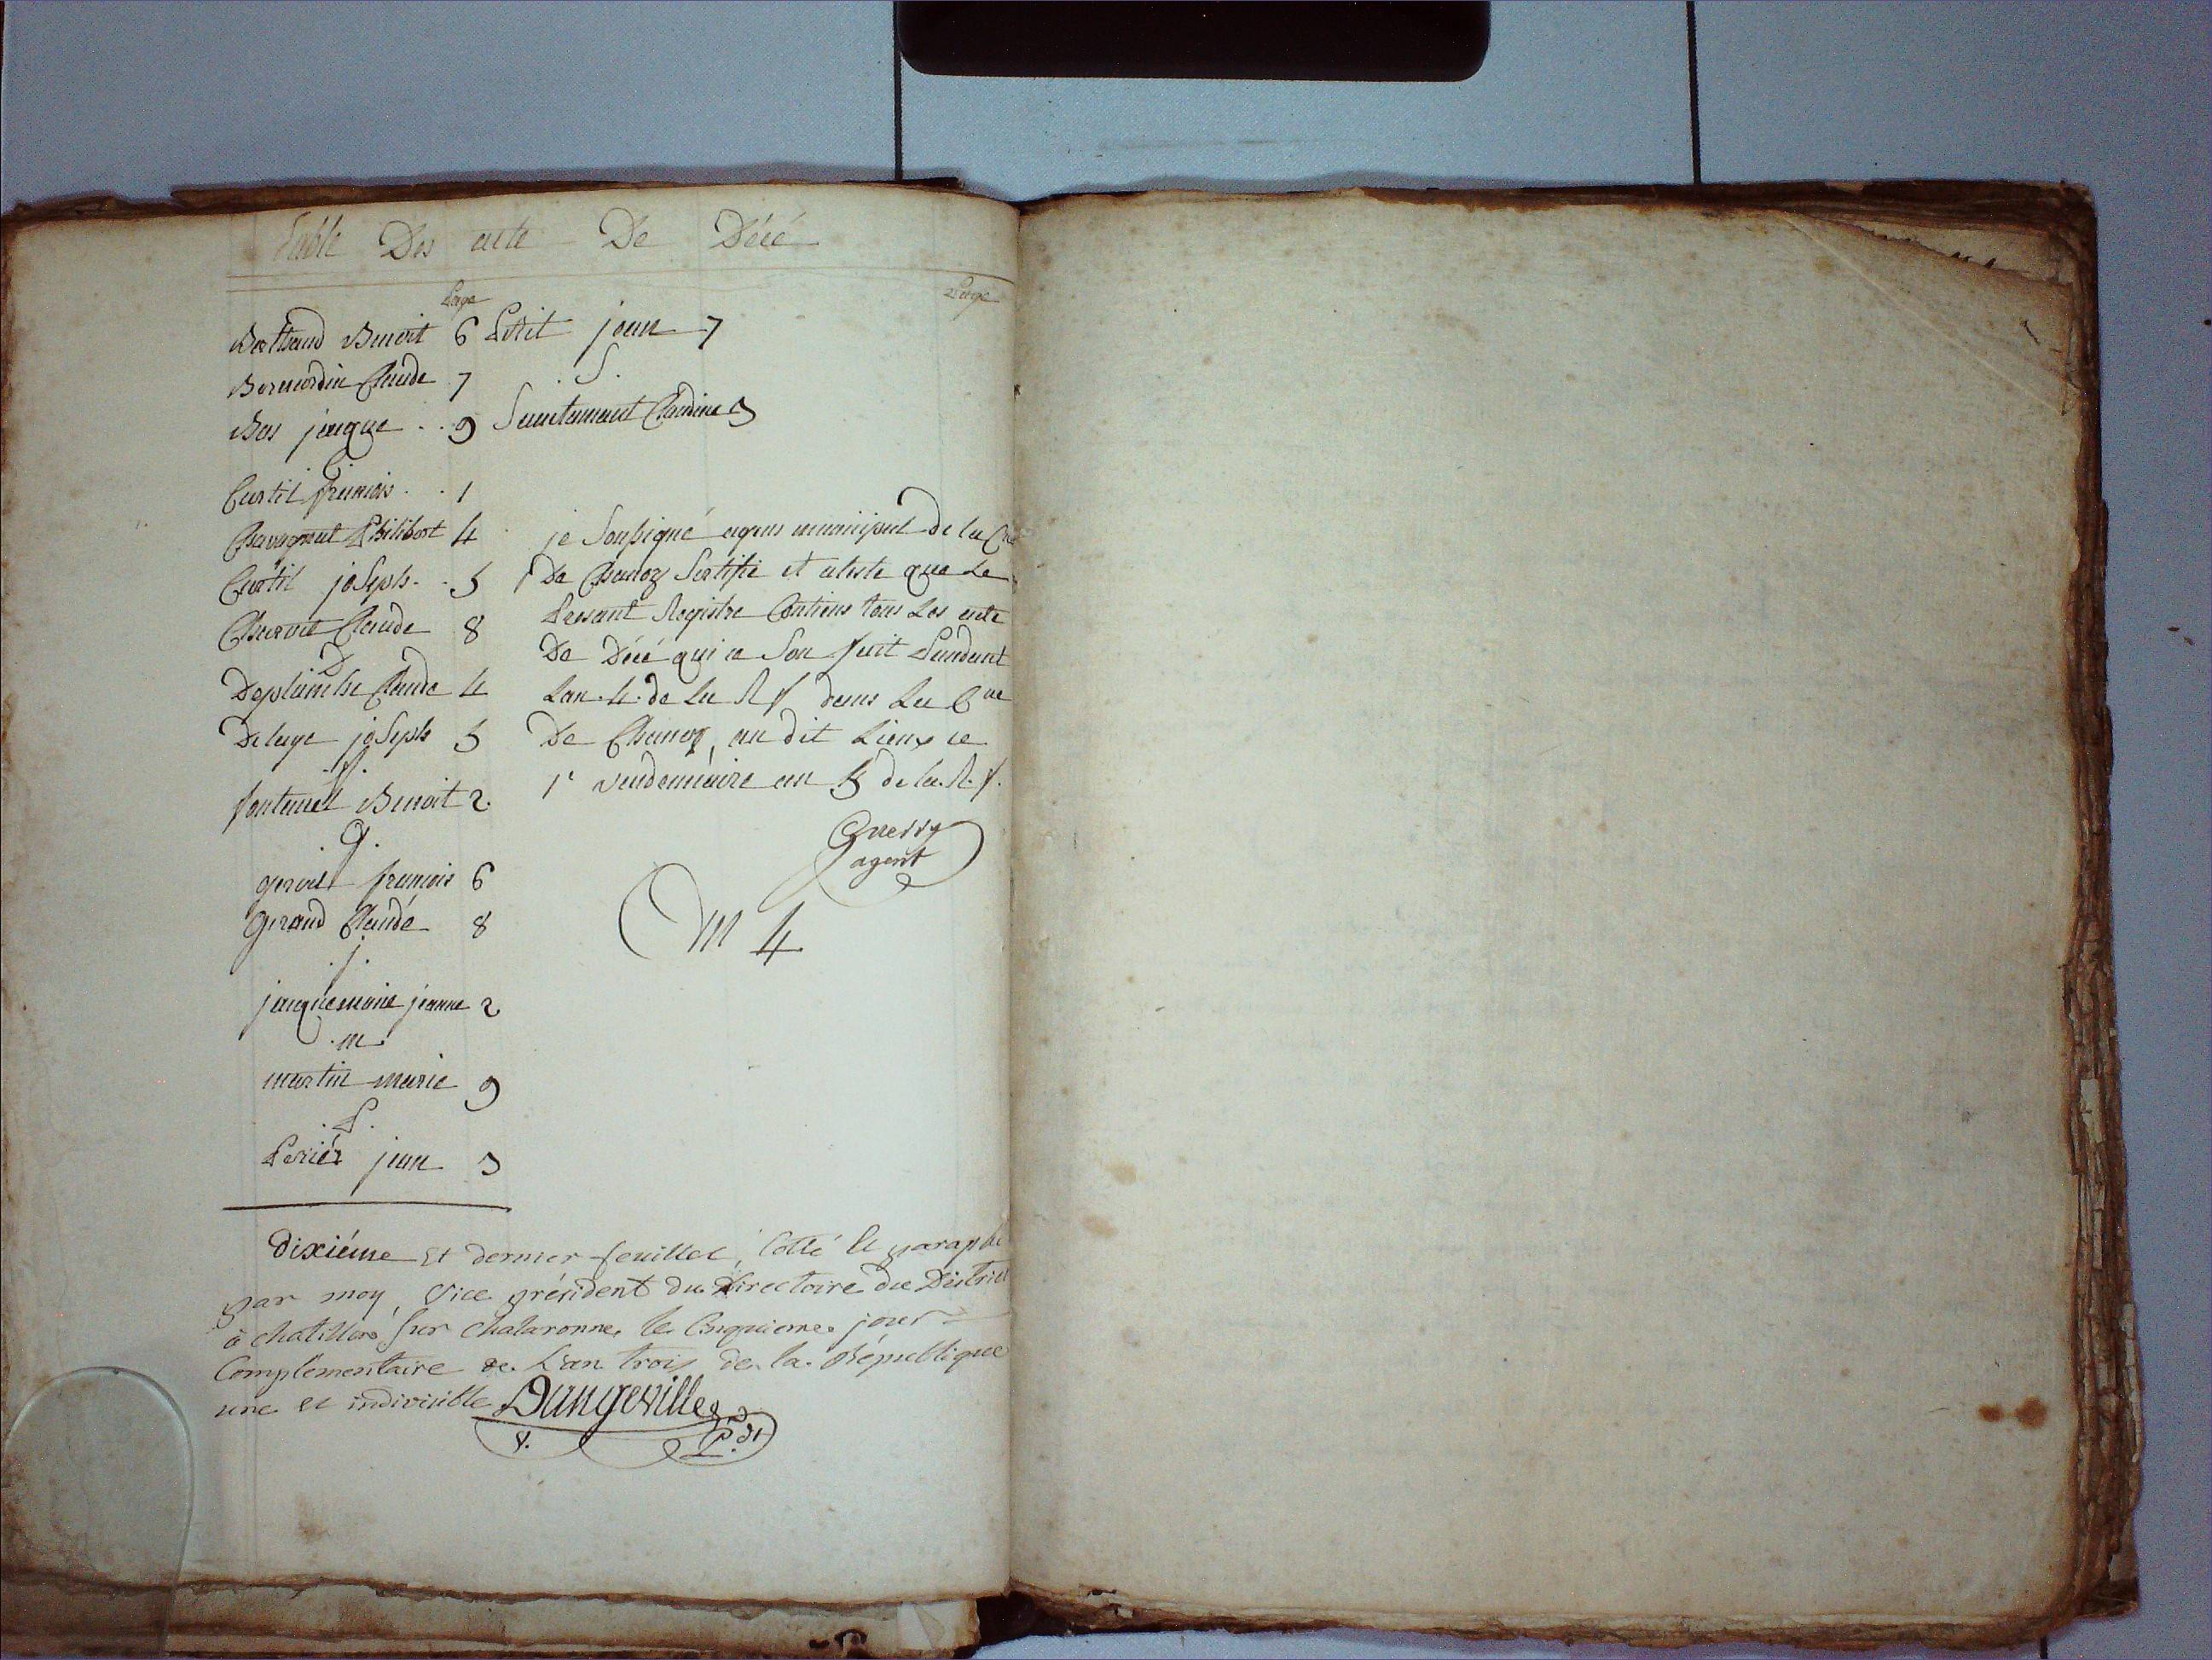 Table Des acte De Décé
Page
Page
Berthaud Benoit 6
Bernardin Claude 7
Bas jaque . . 9
C.
Curtil francois . . 1
Chavagnat Philibert 4
Curtil joSeph . . 5
Charvet Claude 8
D
Deplanche Claude 4
Deluge joSeph 5
.f.
fontenel Benoit 2.
.g.
francois 6
Giraud Claude 8
.j.
jaquemoine jeanne 2
.m.
martin marie 9
.P.
Perier jean 3
Petit jean 7
S.
Claudine 3
je Soussigné agens municipal de la Cne
De Chanoz Sertifie et ateste que Le
Presant Registre Contiens tous Les acte
De Décé qui ce Son fait Pandant
Lan .4. de La R f dans La Cne
De Chanoz, au dit Lieux ce
1r vendemiaire an 5 de la. R. f.
Guerry
agent
M 4
Dixiéme Et dernier feuillet, Cotté et paraphé
par moy, Vice président du Directoire du District
à chatillon sur chalaronne, le Cinquieme jour
Complémentaire de L'an trois de la République
une et indivisible Dangeville
V. P.dt